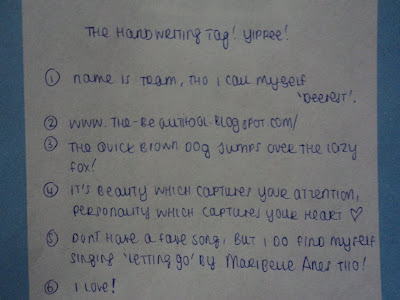 The Handwriting Tag! Yippee!
① Name is Team, tho I call myself
'Deerest'.
② www.the-beautifool.blogspot.com/
③ The quick brown dog jumps over the lazy
fox!
④ It's beauty which captures your attention,
personality which captures your heart ♡
⑤ Don't have a fave song, but I do find myself
singing 'Letting go' by Maribelle Anes tho!
⑥ I love!